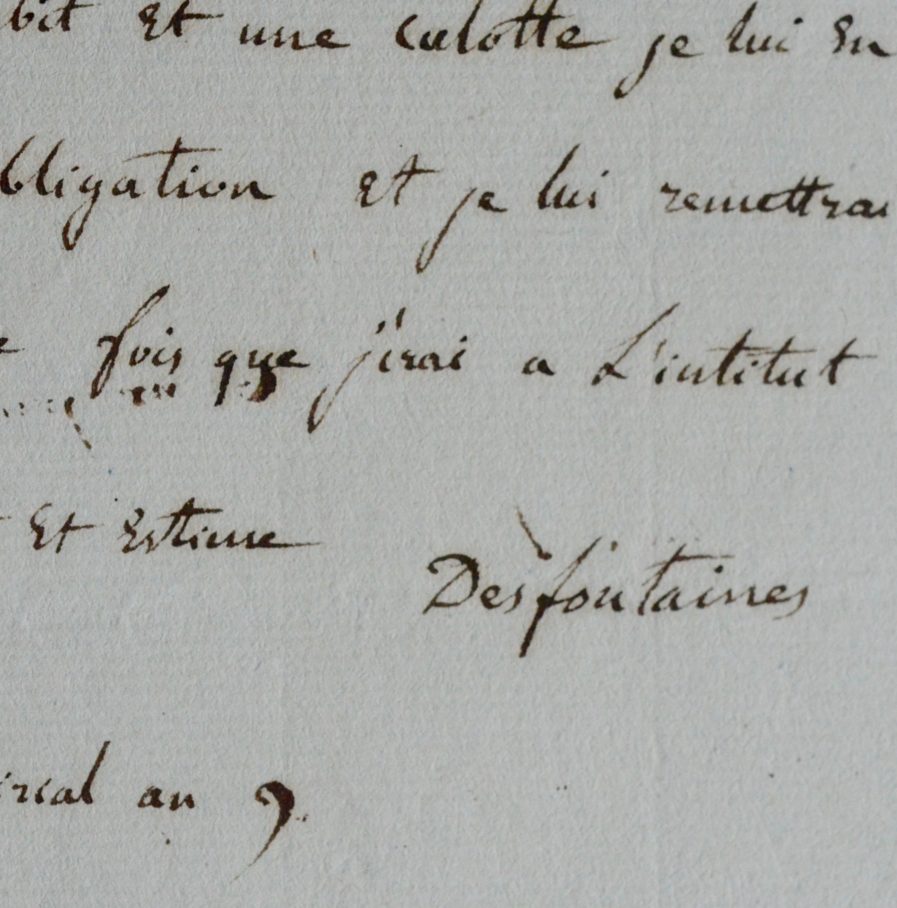 bit Et une culotte je lui En
bligation Et je lui remettrai
fois que j'irai a L'intitut
Et Estime
Desfontaines
réal an 9